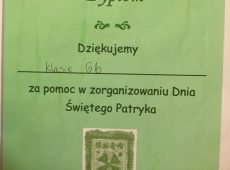 Dyplom
Dziękujemy
klasie 6b
za pomoc w zorganizowaniu Dnia
Świętego Patryka